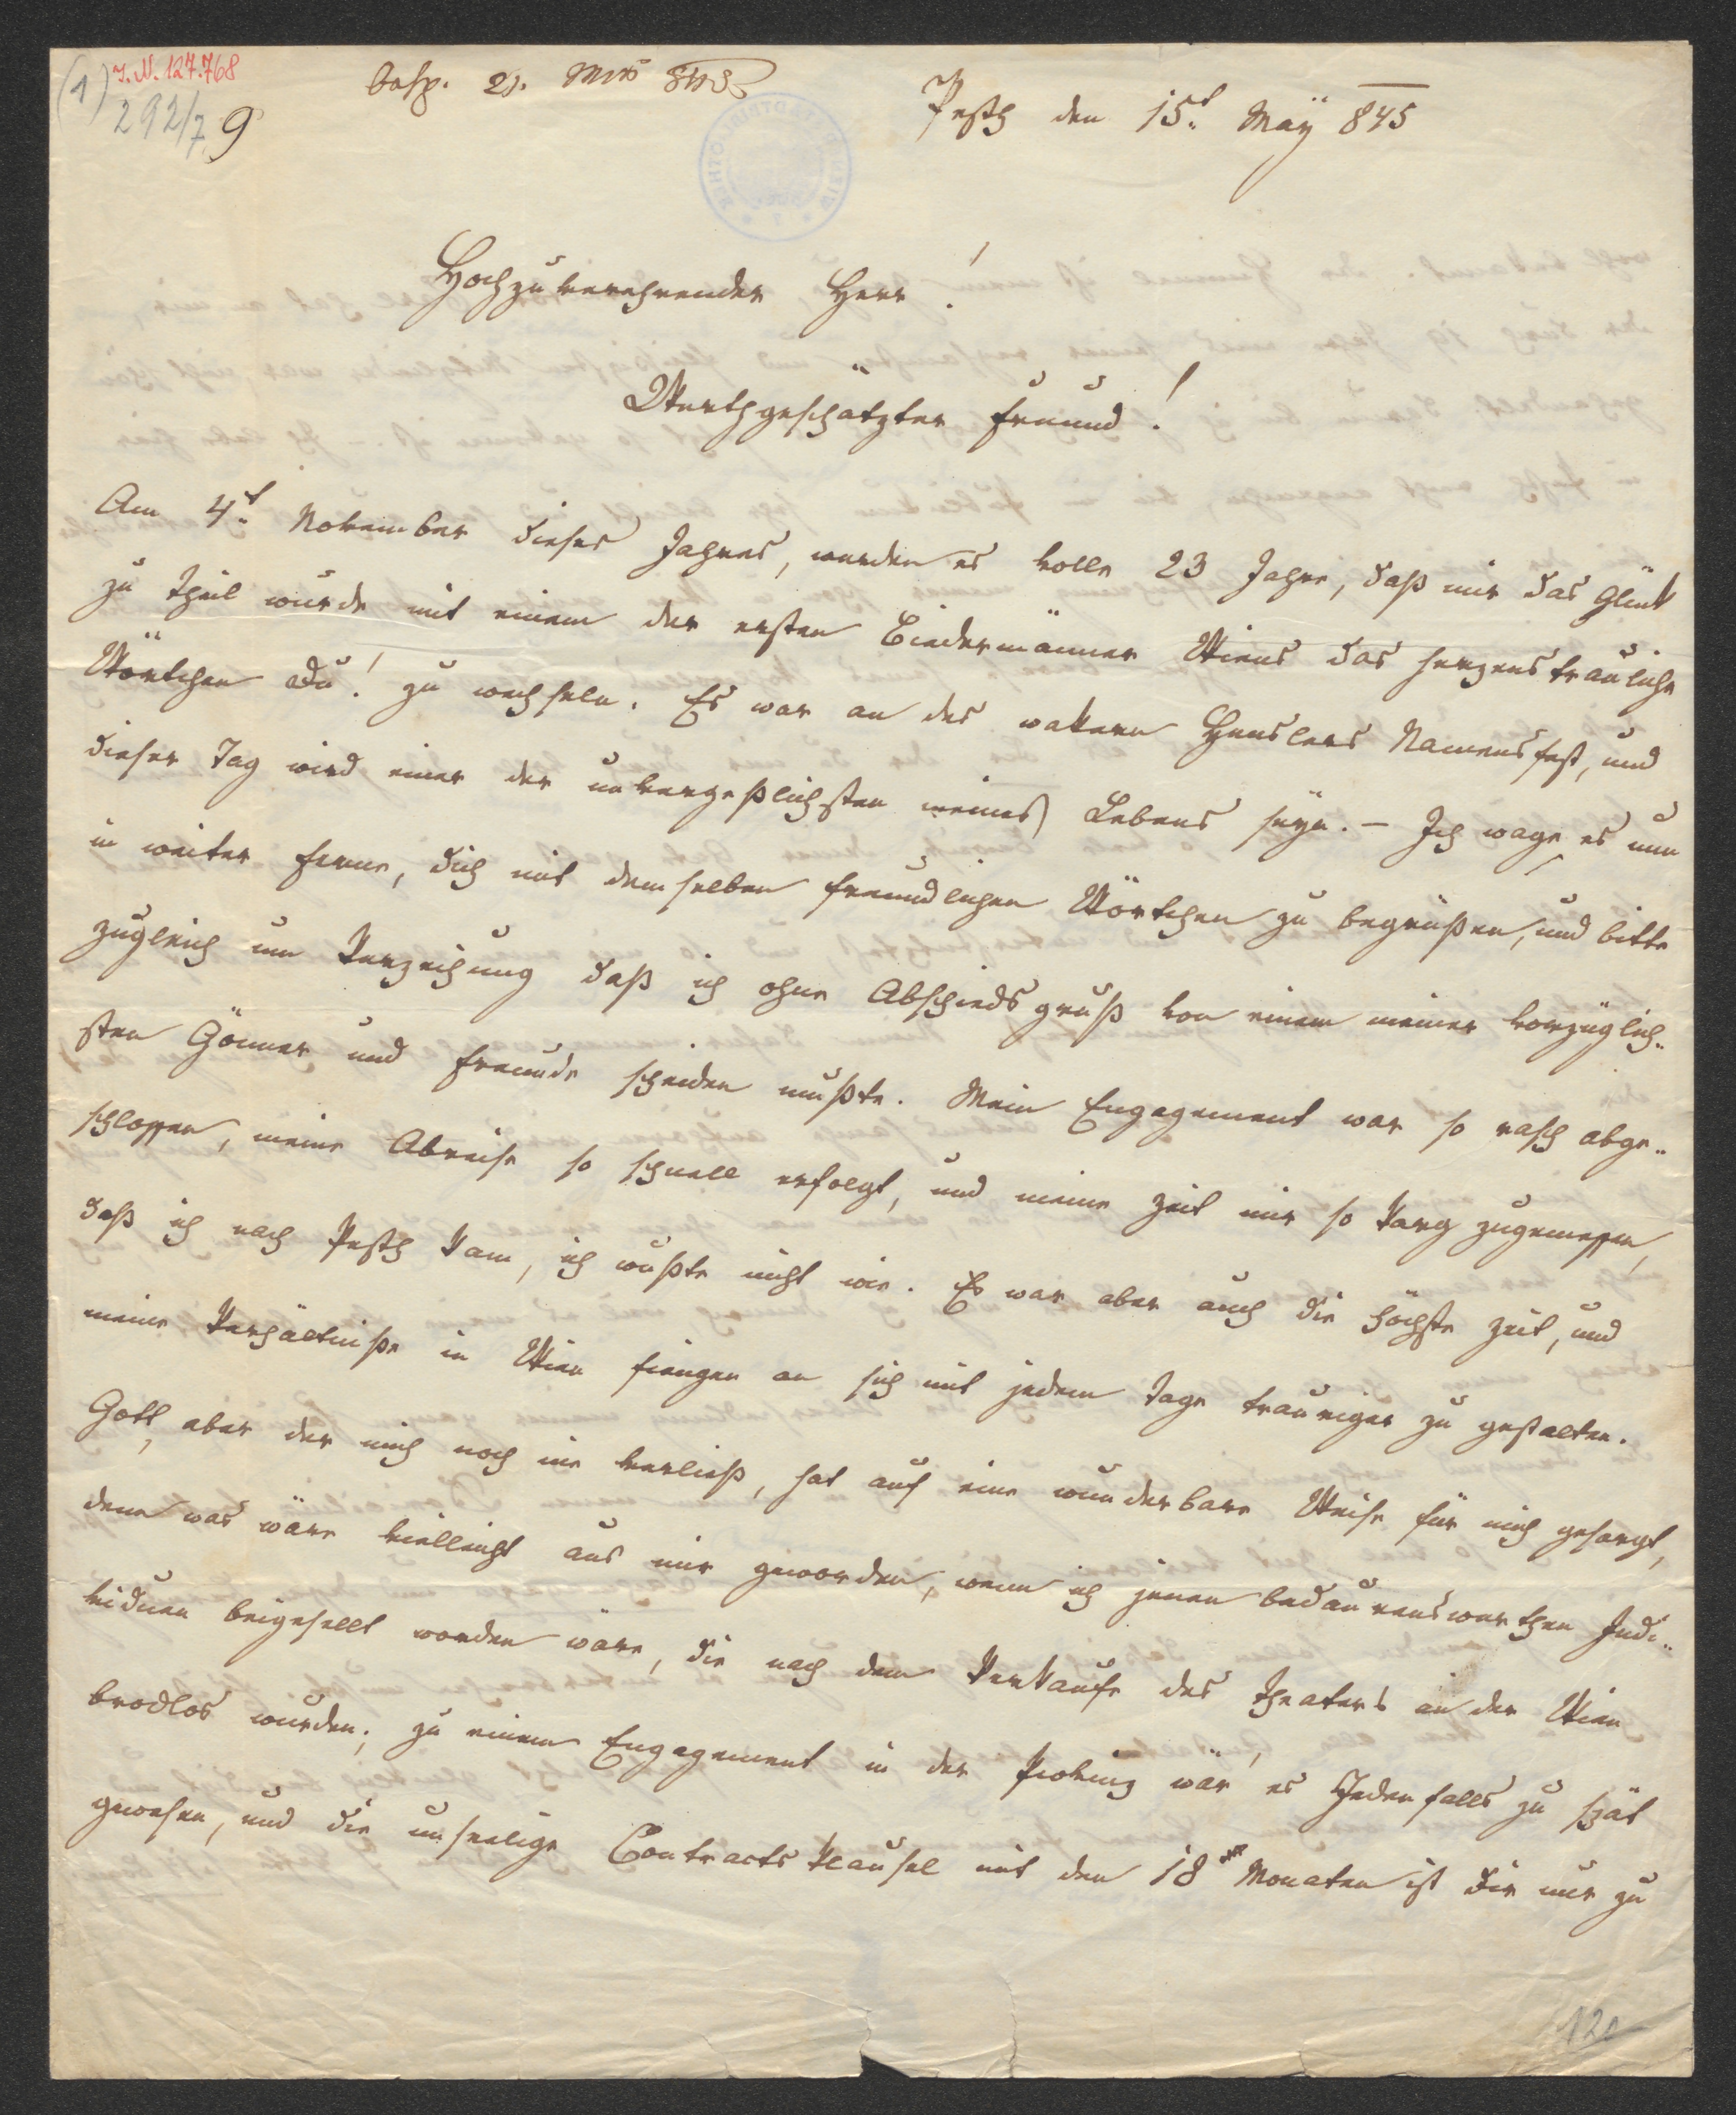 (1) I. N. 127.768
292/7 9
besp. 21. Mai 845
Pesth den 15t. Maÿ 845
Hochzuverehrender Herr!
Werthgeschätzter Freund!
Am 4t. November dieses Jahres, werden es volle 23 Jahre, daß mir das Glück
zu theil wurde mit einem der ersten Biedermänner Wiens das herzenstrauliche
Wörtchen Du! zu wechseln. Es war an des wakern Henslers Namensfest, und
dieser Tag wird einer der unvergeßlichsten meines Lebens seyn. – Ich wage es nun
in weiter Ferne, dich mit demselben freundlichen Wörtchen zu begrüßen, und bitte
zugleich um Verzeihung daß ich ohne Abschiedsgruß von einem meiner vorzüglich„
sten Gönner und Freunde scheiden mußte. Mein Engagement war so rasch abge„
schlossen, meine Abreise so schnell erfolgt, und meine Zeit mir so karg zugemessen,
daß ich nach Pesth kam, ich wußte nicht wie. Es war aber auch die höchste Zeit, und
meine Verhältniße in Wien fiengen an sich mit jedem Tage trauriger zu gestalten.
Gott, aber der mich noch nie verließ, hat auf eine wunderbare Weise für mich gesorgt,
denn was wäre vielleicht aus mir geworden, wenn ich jenen bedaurenswerthen Indi„
viduen beigesellt worden wäre, die nach dem Verkaufe des Theaters an der Wien
brodlos wurden; zu einem Engagement in der Provinz wär' es Jedenfalls zu spät
gewesen, und die unseelige Contracts Klausel mit den 18 Monaten ist dir nur zu
121